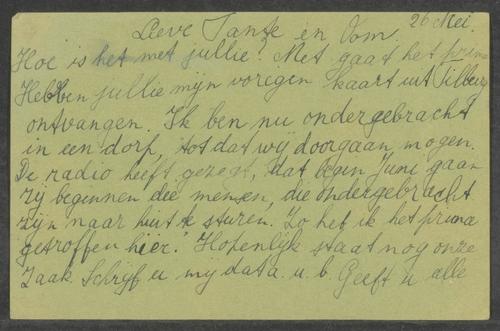 26 Mei.
Lieve Tante en Oom.
Hoe is het met jullie? Met gaat het prima
Hebben jullie mijn vorigen kaart uit Tilburg
ontvangen. Ik ben nu ondergebracht
in een dorp, tot dat wij doorgaan mogen.
De radio heeft gezegt, dat begin Juni gaan
zij beginnen die mensen, die ondergebracht
zijn naar huis te sturen. Zo heb ik het prima
getroffen hier. Hopenlijk staat nog onze
zaak. Schrijf u my data u. b. Geeft u alle